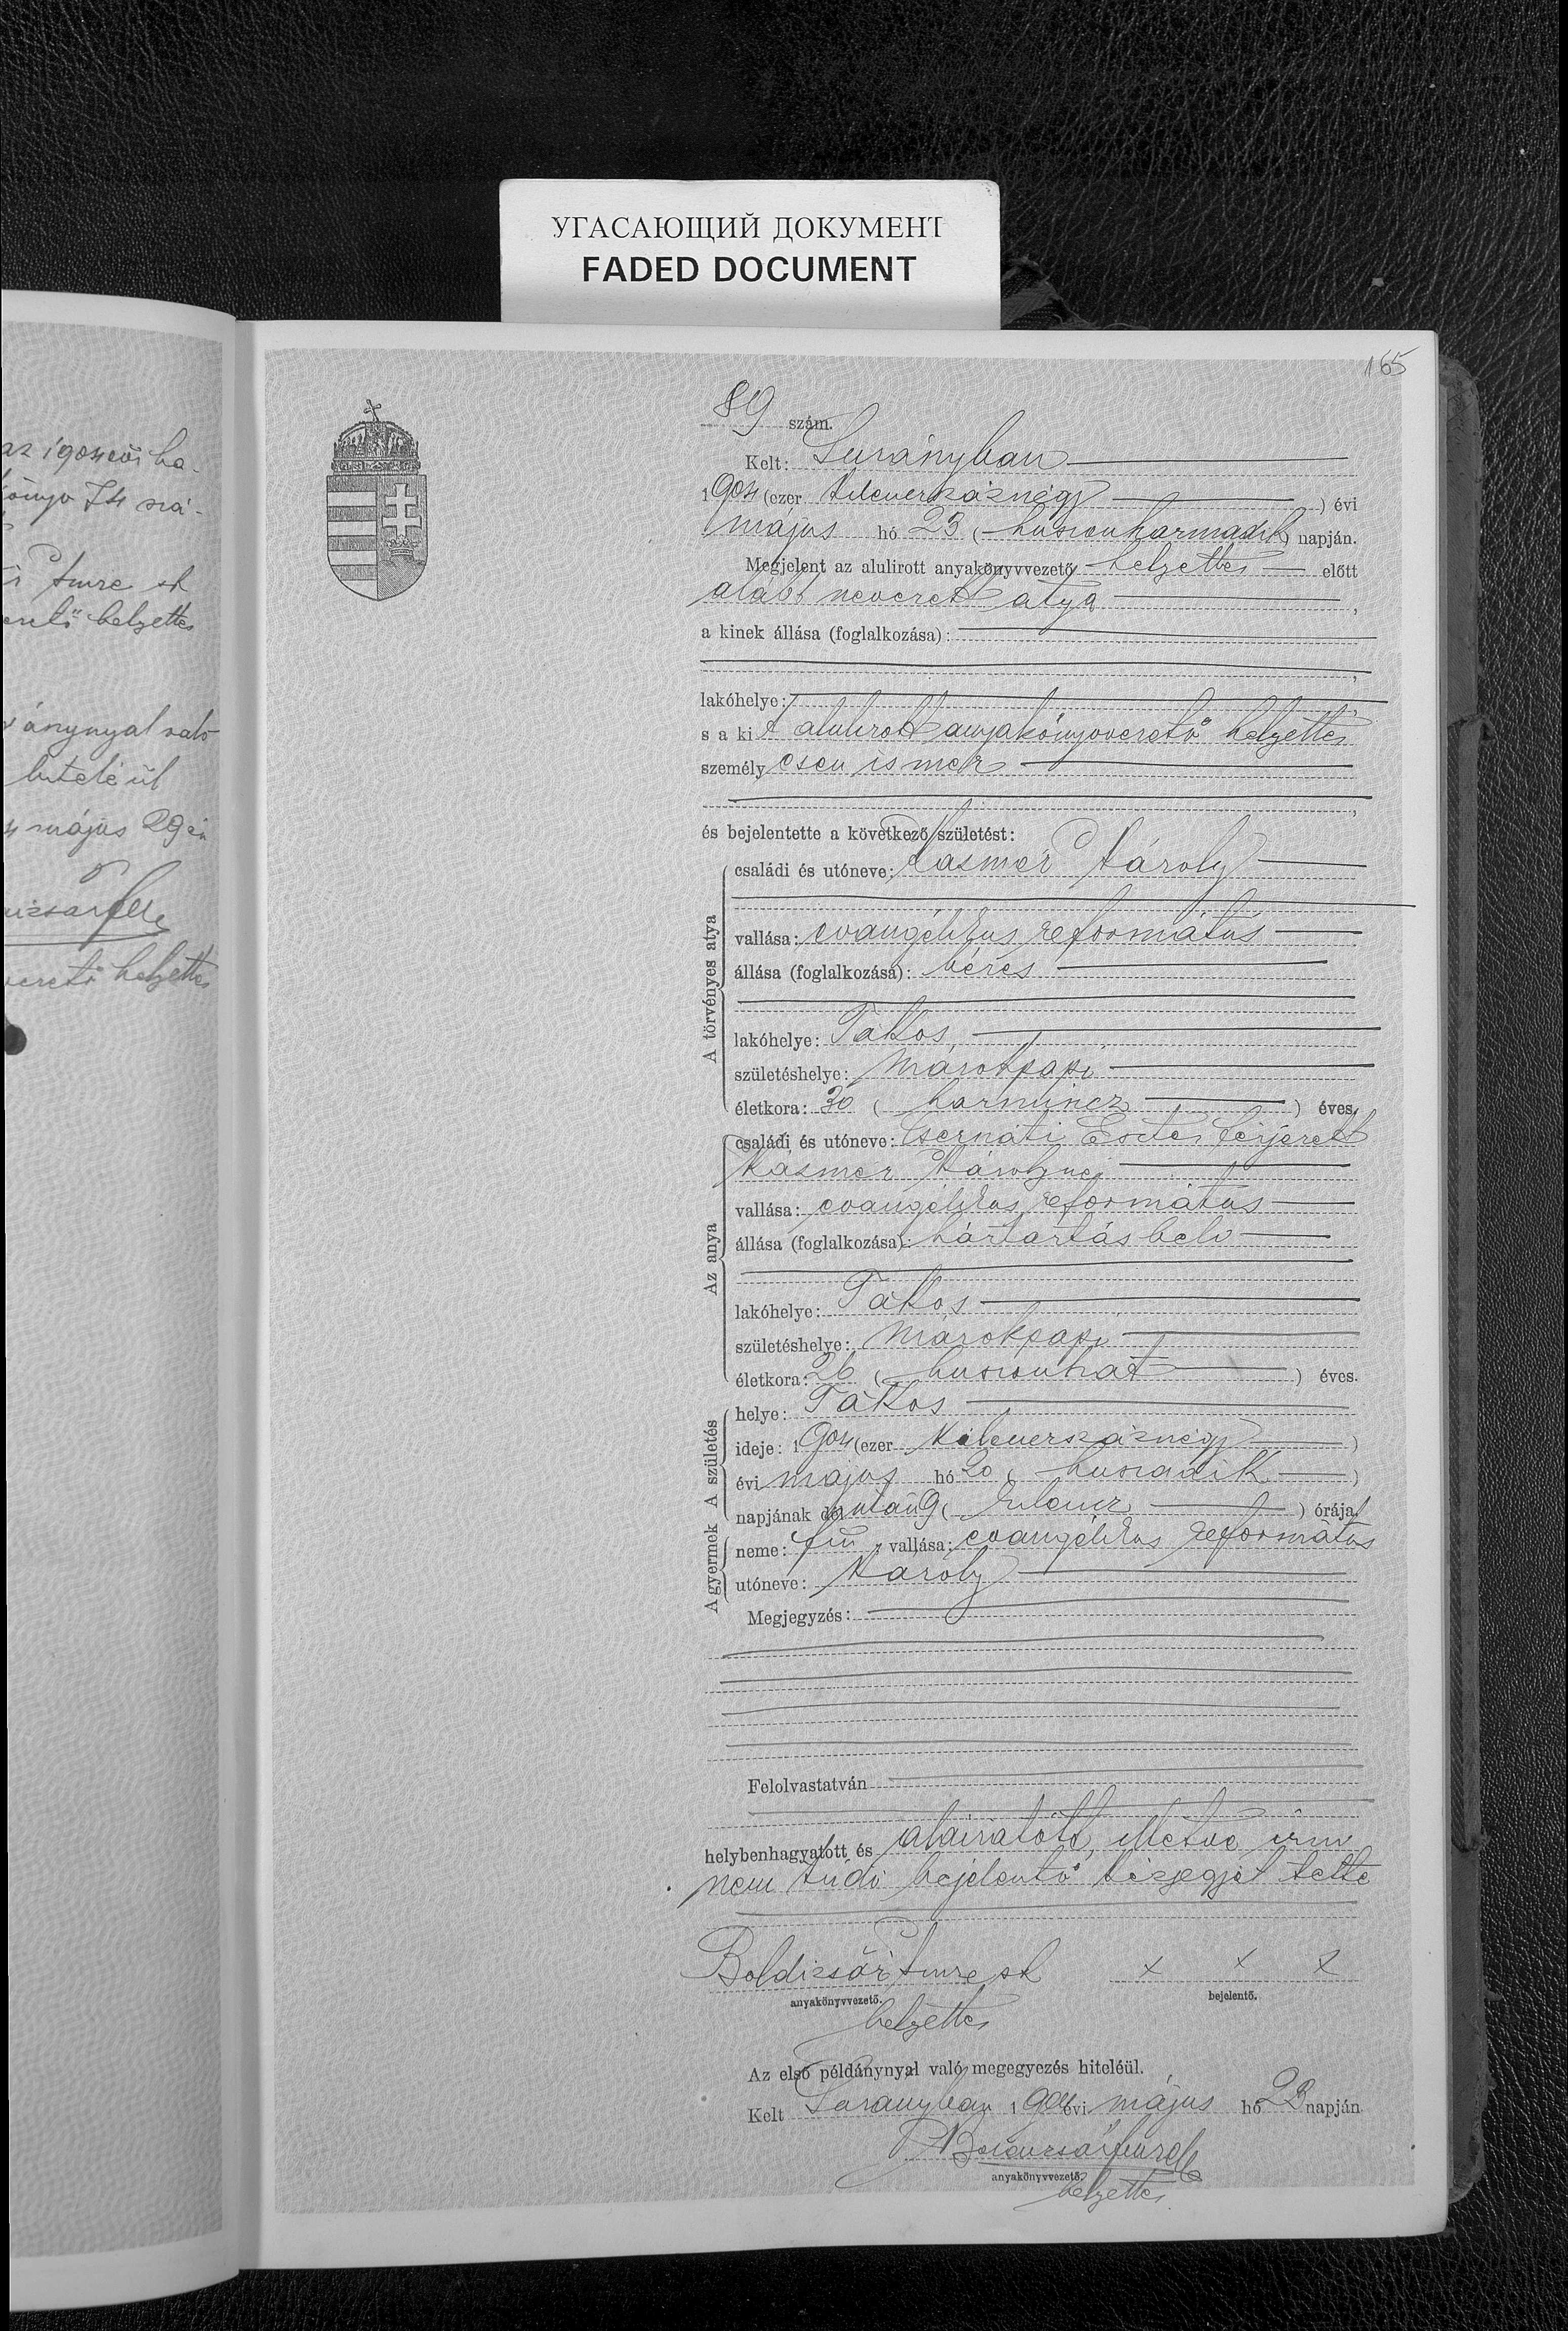 УГАСАЮЩИЙ ДОКУМЕНТ
FADED DOCUMENT
165
az 1904 évi ha-
könyv 74 szá-
Imre sk
helyettes
ánynyal való
hiteléül
május 29 én
helyettes
89 szám.
Kelt: Surányban
1904 (ezer kilenczszáznégy) évi
május hó 23 (huszonharmadik) napján.
Megjelent az alulirott anyakönyvvezető helyettes előtt
alább nevezett atya,
a kinek állása (foglalkozása):
,
lakóhelye:
s a ki t alulirott anyakönyvvezető helyettes
személyesen ismer
,
és bejelentette a következő születést:
A törvényes atya
családi és utóneve: Kazmér Károly
vallása: evangélikus református
állása (foglalkozása): béres
lakóhelye: Tákos,
születéshelye: Márokpapi
életkora: 30 (harmincz) éves,
Az anya
családi és utóneve: Csernáti Eszter férjezett
Kazmér Károlyné
vallása: evangélikus református
állása (foglalkozása): háztartásbeli
lakóhelye: Tákos
születéshelye: Márokpapi
életkora: 26 (huszonhat) éves.
A születés
helye: Tákos
ideje: 1904 (ezer kilenczszáznégy)
évi május hó 20 (huszadik)
napjának délután 9 (kilencz) órája.
A gyermek
neme: fiú, vallása: evangélikus református
utóneve: Károly
Megjegyzés:
Felolvastatván
helybenhagyatott és aláiratott, illetve irni
nem tudó bejelentő kézjegyét tette
Boldizsár Imre sk x x x
anyakönyvvezető. bejelentő.
helyettes
Az első példánynyal való megegyezés hiteléül.
Kelt Surányban 1904 évi május hó 23 napján
Boldizsár Imre
anyakönyvvezető.
helyettes